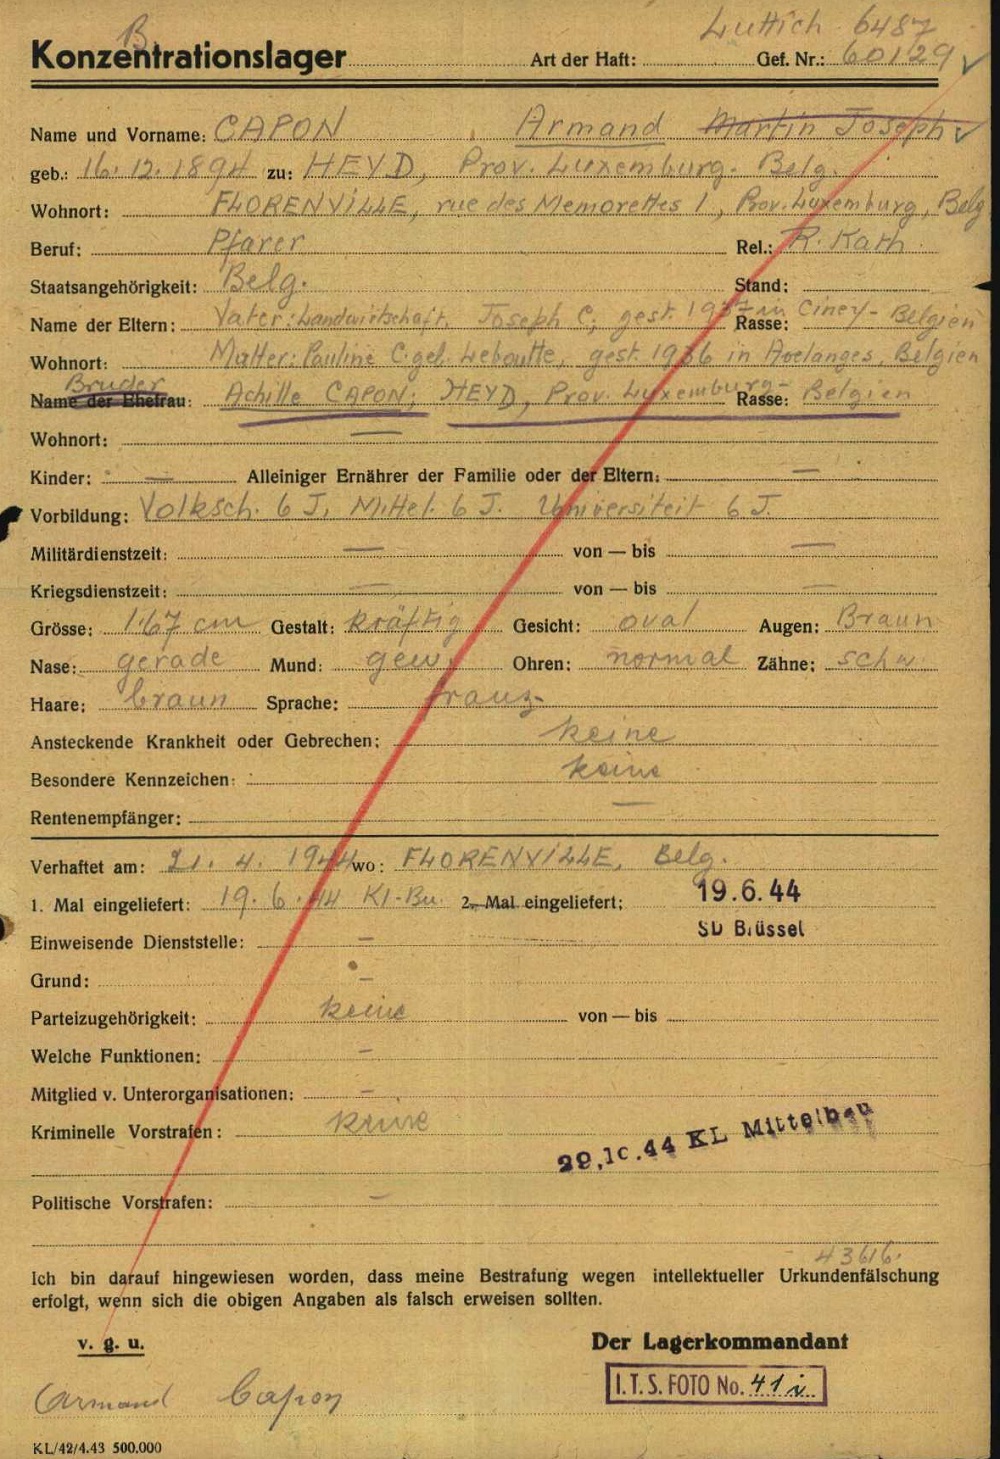 B.
Lüttich 6487
Konzentrationslager Art der Haft: Gef. Nr.: 60129
Name und Vorname: CAPON Armand Martin Joseph
geb.: 16.12.1894 zu: HEYD, Prov. Luxemburg. Belg.
Wohnort: FLORENVILLE, rue des Memorettes 1, Prov. Luxemburg, Belg
Beruf: Pfarer Rel.: R. Kath.
Staatsangehörigkeit: Belg. Stand:
Name der Eltern: Vater: Landwirtschaft. Joseph C, gest. 1937 in Ciney - Belgien Rasse:
Wohnort: Mutter: Pauline C. geb. Leboutte, gest. 1936 in Avelanges, Belgien
Bruder
Name der Ehefrau: Achille CAPON; HEYD, Prov. Luxemburg - Rasse: Belgien
Wohnort: —
Kinder: — Alleiniger Ernährer der Familie oder der Eltern: —
Vorbildung: Volksch. 6 J, Mittel. 6 J. Universiteit 6 J.
Militärdienstzeit: — von — bis —
Kriegsdienstzeit: — von — bis —
Grösse: 167 cm Gestalt: kräftig Gesicht: oval Augen: Braun
Nase: gerade Mund: gew. Ohren: normal Zähne: schw.
Haare: braun Sprache: franz.
Ansteckende Krankheit oder Gebrechen: keine
Besondere Kennzeichen: keine
Rentenempfänger: —
Verhaftet am: 21. 4. 1944 wo: FLORENVILLE, Belg.
1. Mal eingeliefert: 19.6.44 Kl-Bu. 2. Mal eingeliefert: 19.6.44
Einweisende Dienststelle: — SD Brüssel
Grund: —
Parteizugehörigkeit: keine von — bis
Welche Funktionen: —
Mitglied v. Unterorganisationen: —
Kriminelle Vorstrafen: keine
29.10.44 KL Mittelbau
Politische Vorstrafen: —
43616.
Ich bin darauf hingewiesen worden, dass meine Bestrafung wegen intellektueller Urkundenfälschung
erfolgt, wenn sich die obigen Angaben als falsch erweisen sollten.
v. g. u. Der Lagerkommandant
I.T.S. FOTO No. 41 i
Armand Capon
KL/42/4.43 500.000